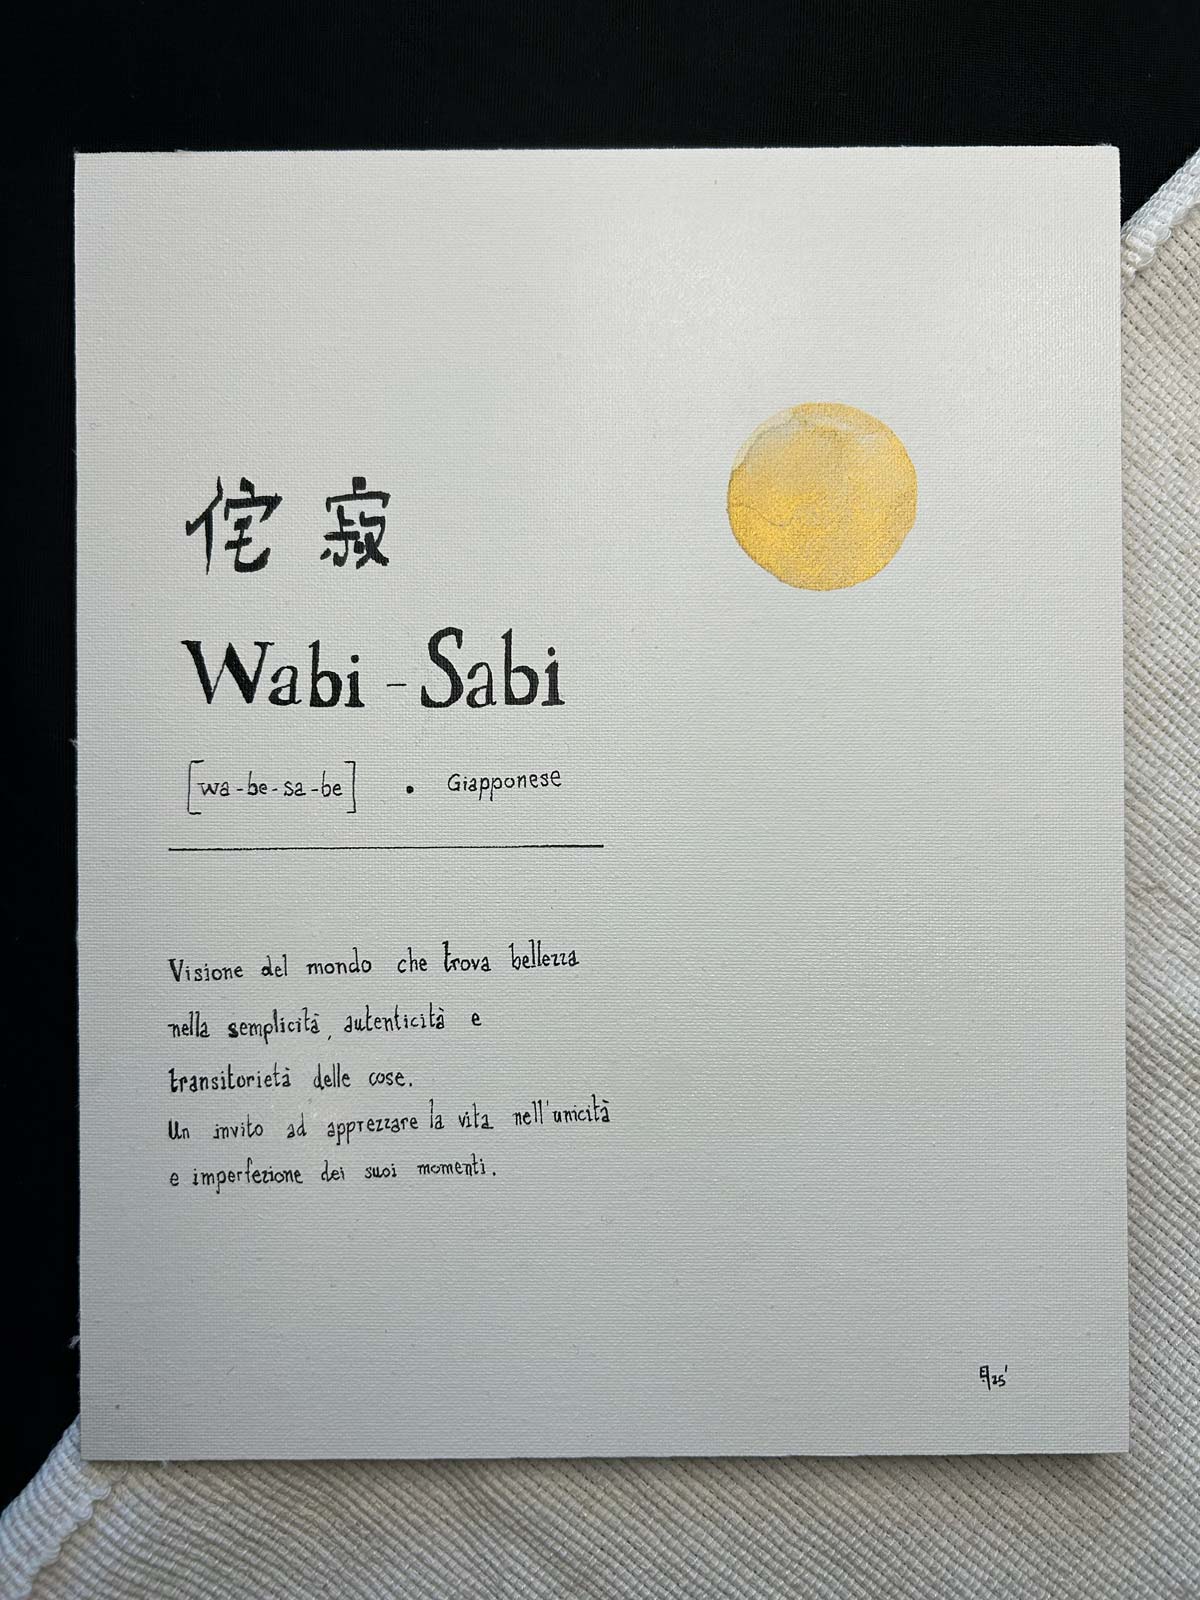 侘寂
Wabi-Sabi
[wa-be-sa-be] • Giapponese
Visione del mondo che trova bellezza
nella semplicità, autenticità e
transitorietà delle cose.
Un invito ad apprezzare la vita nell'unicità
e imperfezione dei suoi momenti.
25'